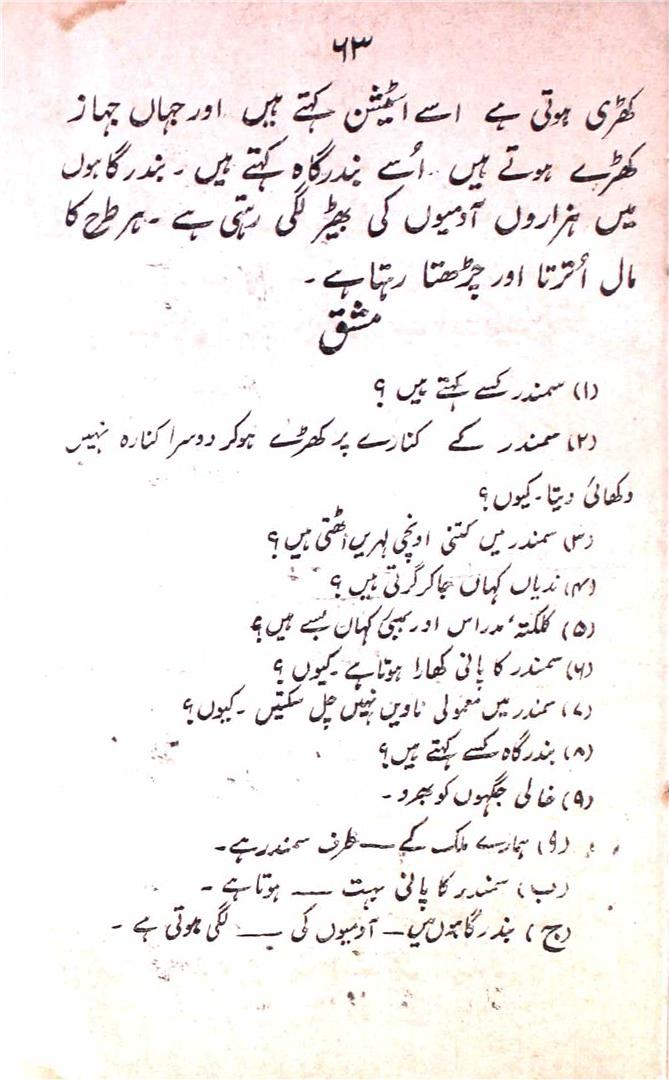 ۶۳
کھڑی ہوتی ہے اسے اسٹیشن کہتے ہیں اور جہاں جہاز
کھڑے ہوتے ہیں اُسے بندرگاہ کہتے ہیں ۔ بندرگاہوں
میں ہزاروں آدمیوں کی بھیڑ لگی رہتی ہے ۔ ہر طرح کا
مال اُترتا اور چڑھتا رہتا ہے ۔
مشق
(۱) سمندر کسے کہتے ہیں ؟
(۲) سمندر کے کنارے پر کھڑے ہوکر دوسرا کنارہ نہیں
دکھائی دیتا ۔ کیوں ؟
(۳) سمندر میں کتنی اونچی لہریں اٹھتی ہیں ؟
(۴) ندیاں کہاں جاکر گرتی ہیں ؟
(۵) کلکتہ، مدراس اور بمبئی کہاں بسے ہیں ؟
(۶) سمندر کا پانی کھارا ہوتا ہے ۔ کیوں ؟
(۷) سمندر میں معمولی ناویں نہیں چل سکتیں ۔ کیوں ؟
(۸) بندرگاہ کسے کہتے ہیں ؟
(۹) خالی جگہوں کو بھرو ۔
(ا) ہمارے ملک کے — طرف سمندر ہے ۔
(ب) سمندر کا پانی بہت — ہوتا ہے ۔
(ج) بندرگاہوں میں — آدمیوں کی — لگی ہوتی ہے ۔